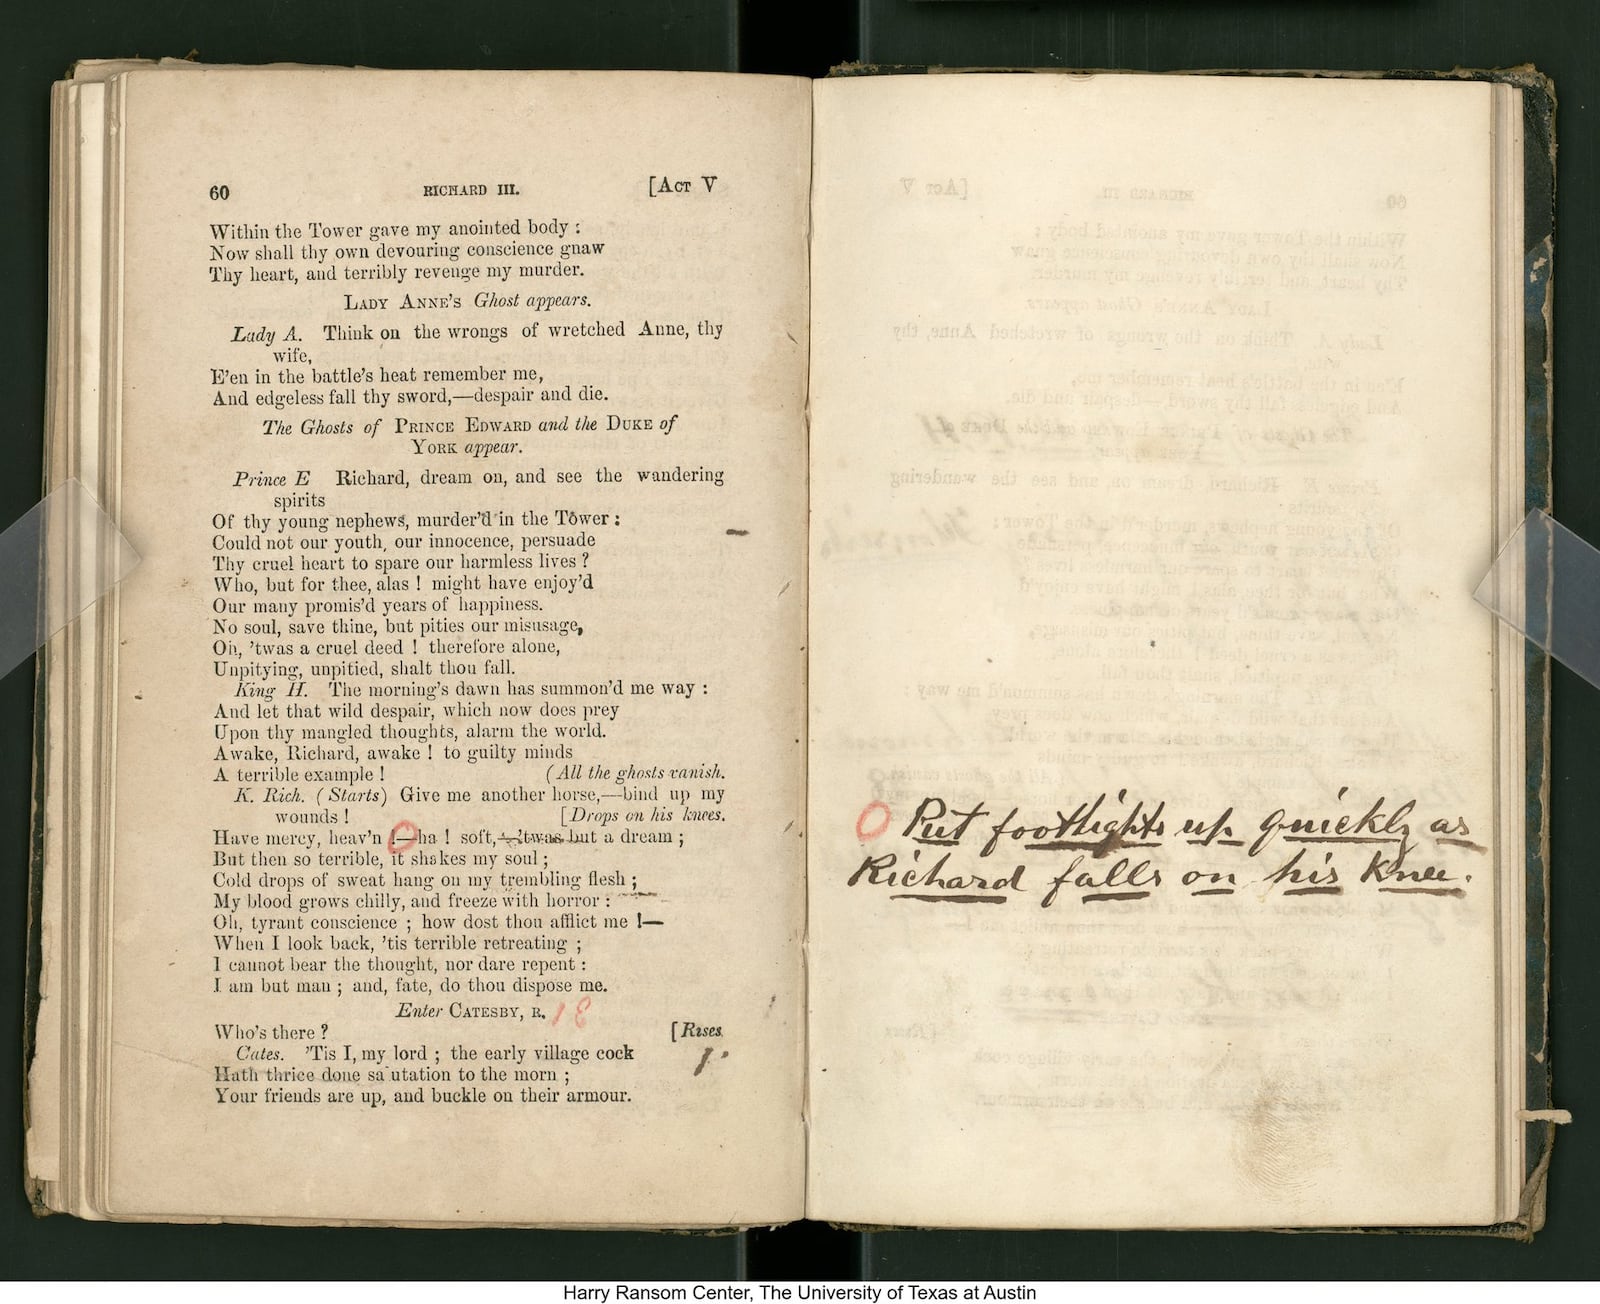 60 RICHARD III. [ACT V
Within the Tower gave my anointed body :
Now shall thy own devouring conscience gnaw
Thy heart, and terribly revenge my murder.
LADY ANNE'S Ghost appears.
Lady A. Think on the wrongs of wretched Anne, thy
wife,
E'en in the battle's heat remember me,
And edgeless fall thy sword,—despair and die.
The Ghosts of PRINCE EDWARD and the DUKE of
YORK appear.
Prince E Richard, dream on, and see the wandering
spirits
Of thy young nephews, murder'd in the Tower :
Could not our youth, our innocence, persuade
Thy cruel heart to spare our harmless lives ?
Who, but for thee, alas ! might have enjoy'd
Our many promis'd years of happiness.
No soul, save thine, but pities our misusage,
Oh, 'twas a cruel deed ! therefore alone,
Unpitying, unpitied, shalt thou fall.
King H. The morning's dawn has summon'd me way :
And let that wild despair, which now does prey
Upon thy mangled thoughts, alarm the world.
Awake, Richard, awake ! to guilty minds
A terrible example ! (All the ghosts vanish.
K. Rich. (Starts) Give me another horse,—bind up my
wounds ! [Drops on his knees.
Have mercy, heav'n !—ha ! soft,—'twas but a dream ;
But then so terrible, it shakes my soul ;
Cold drops of sweat hang on my trembling flesh ;
My blood grows chilly, and freeze with horror :
Oh, tyrant conscience ; how dost thou afflict me !—
When I look back, 'tis terrible retreating ;
I cannot bear the thought, nor dare repent :
I am but man ; and, fate, do thou dispose me.
Enter CATESBY, R. 18
Who's there ? [Rises.
Cates. 'Tis I, my lord ; the early village cock
Hath thrice done sa utation to the morn ;
Your friends are up, and buckle on their armour.
O Put footlights up quickly as
Richard falls on his Knee.
Harry Ransom Center, The University of Texas at Austin